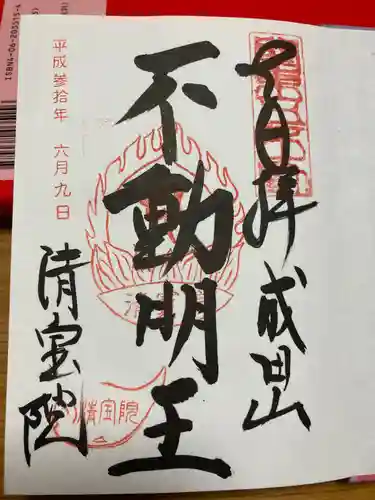 奉拝
成田山
不動明王
平成参拾年 六月九日
清宝院
清宝院